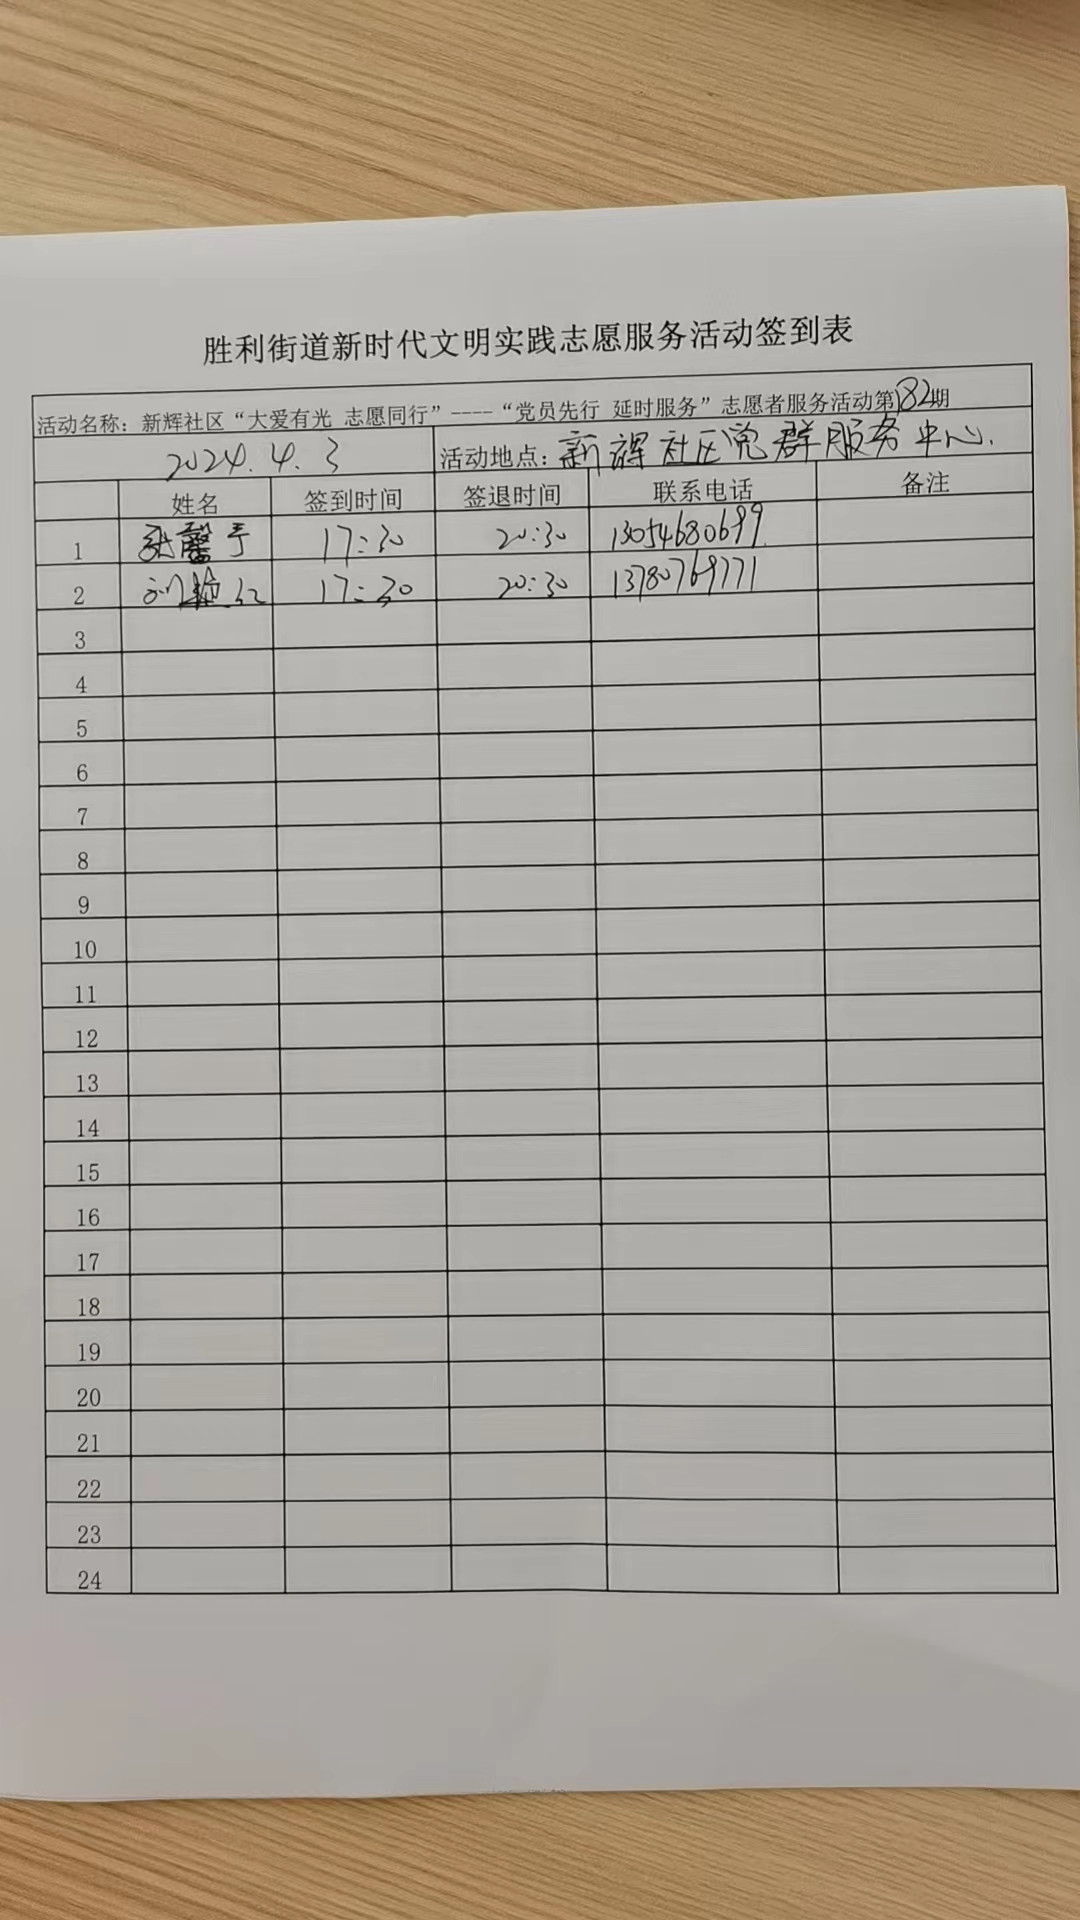 胜利街道新时代文明实践志愿服务活动签到表
活动名称：新辉社区“大爱有光 志愿同行”----“党员先行 延时服务”志愿者服务活动第182期
2024.4.3 活动地点：新辉社区党群服务中心.
姓名 签到时间 签退时间 联系电话 备注
1 张馨予 17:30 20:30 13054680699
2 刘艳红 17:30 20:30 13780769771
3
4
5
6
7
8
9
10
11
12
13
14
15
16
17
18
19
20
21
22
23
24